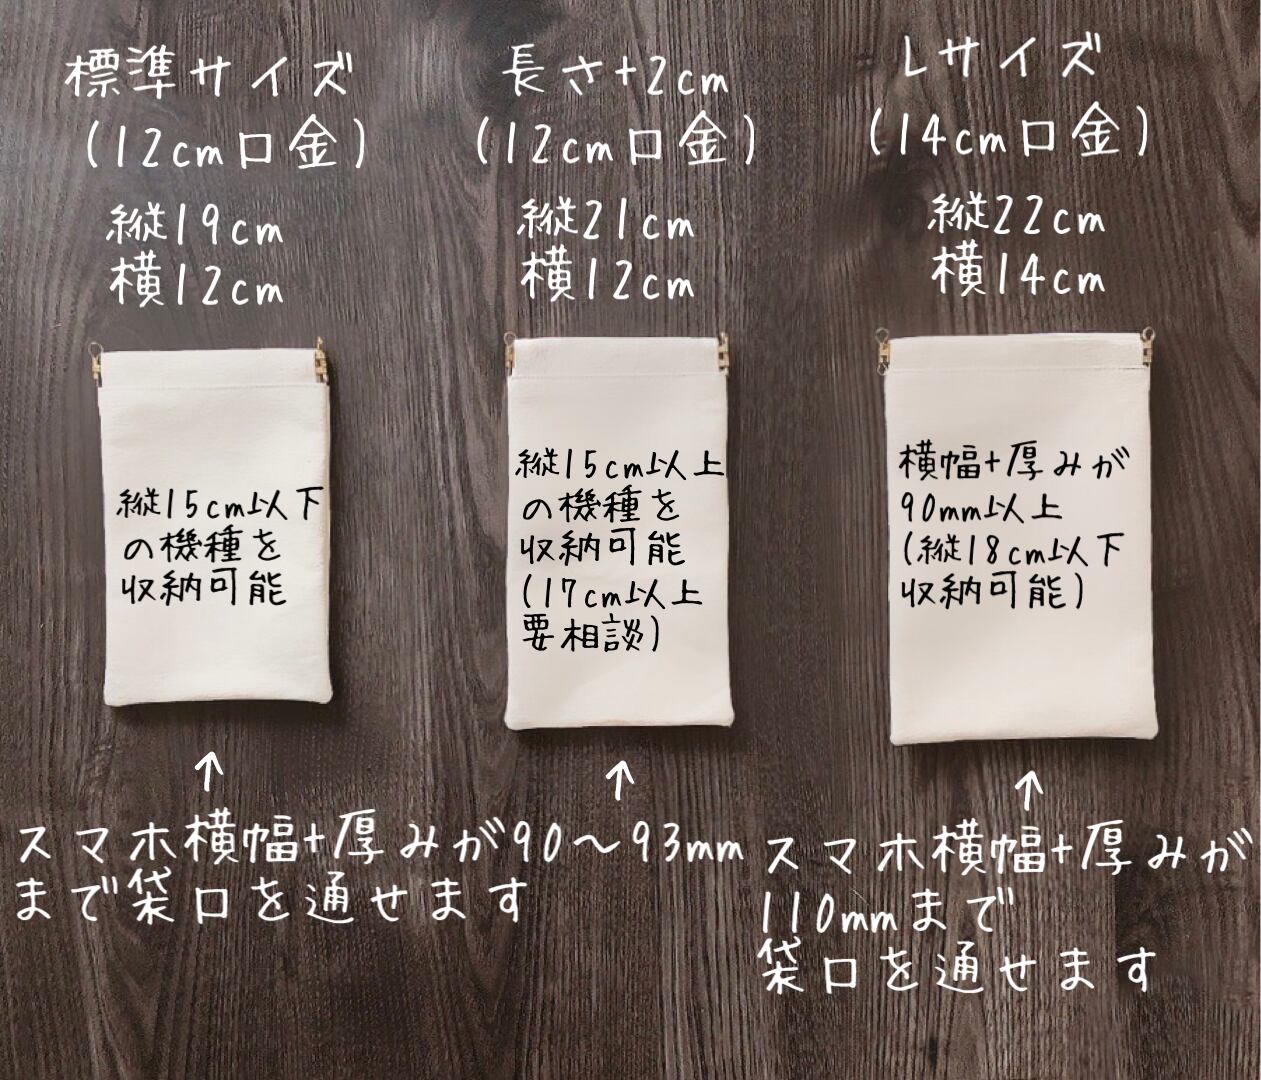 標準サイズ
(12cm口金)
縦19cm
横12cm
長さ+2cm
(12cm口金)
縦21cm
横12cm
Lサイズ
(14cm口金)
縦22cm
横14cm
縦15cm以下
の機種を
収納可能
縦15cm以上
の機種を
収納可能
(17cm以上
要相談)
横幅+厚みが
90mm以上
(縦18cm以下
収納可能)
↑
スマホ横幅+厚みが90〜93mm
まで袋口を通せます
↑
↑
スマホ横幅+厚みが
110mmまで
袋口を通せます